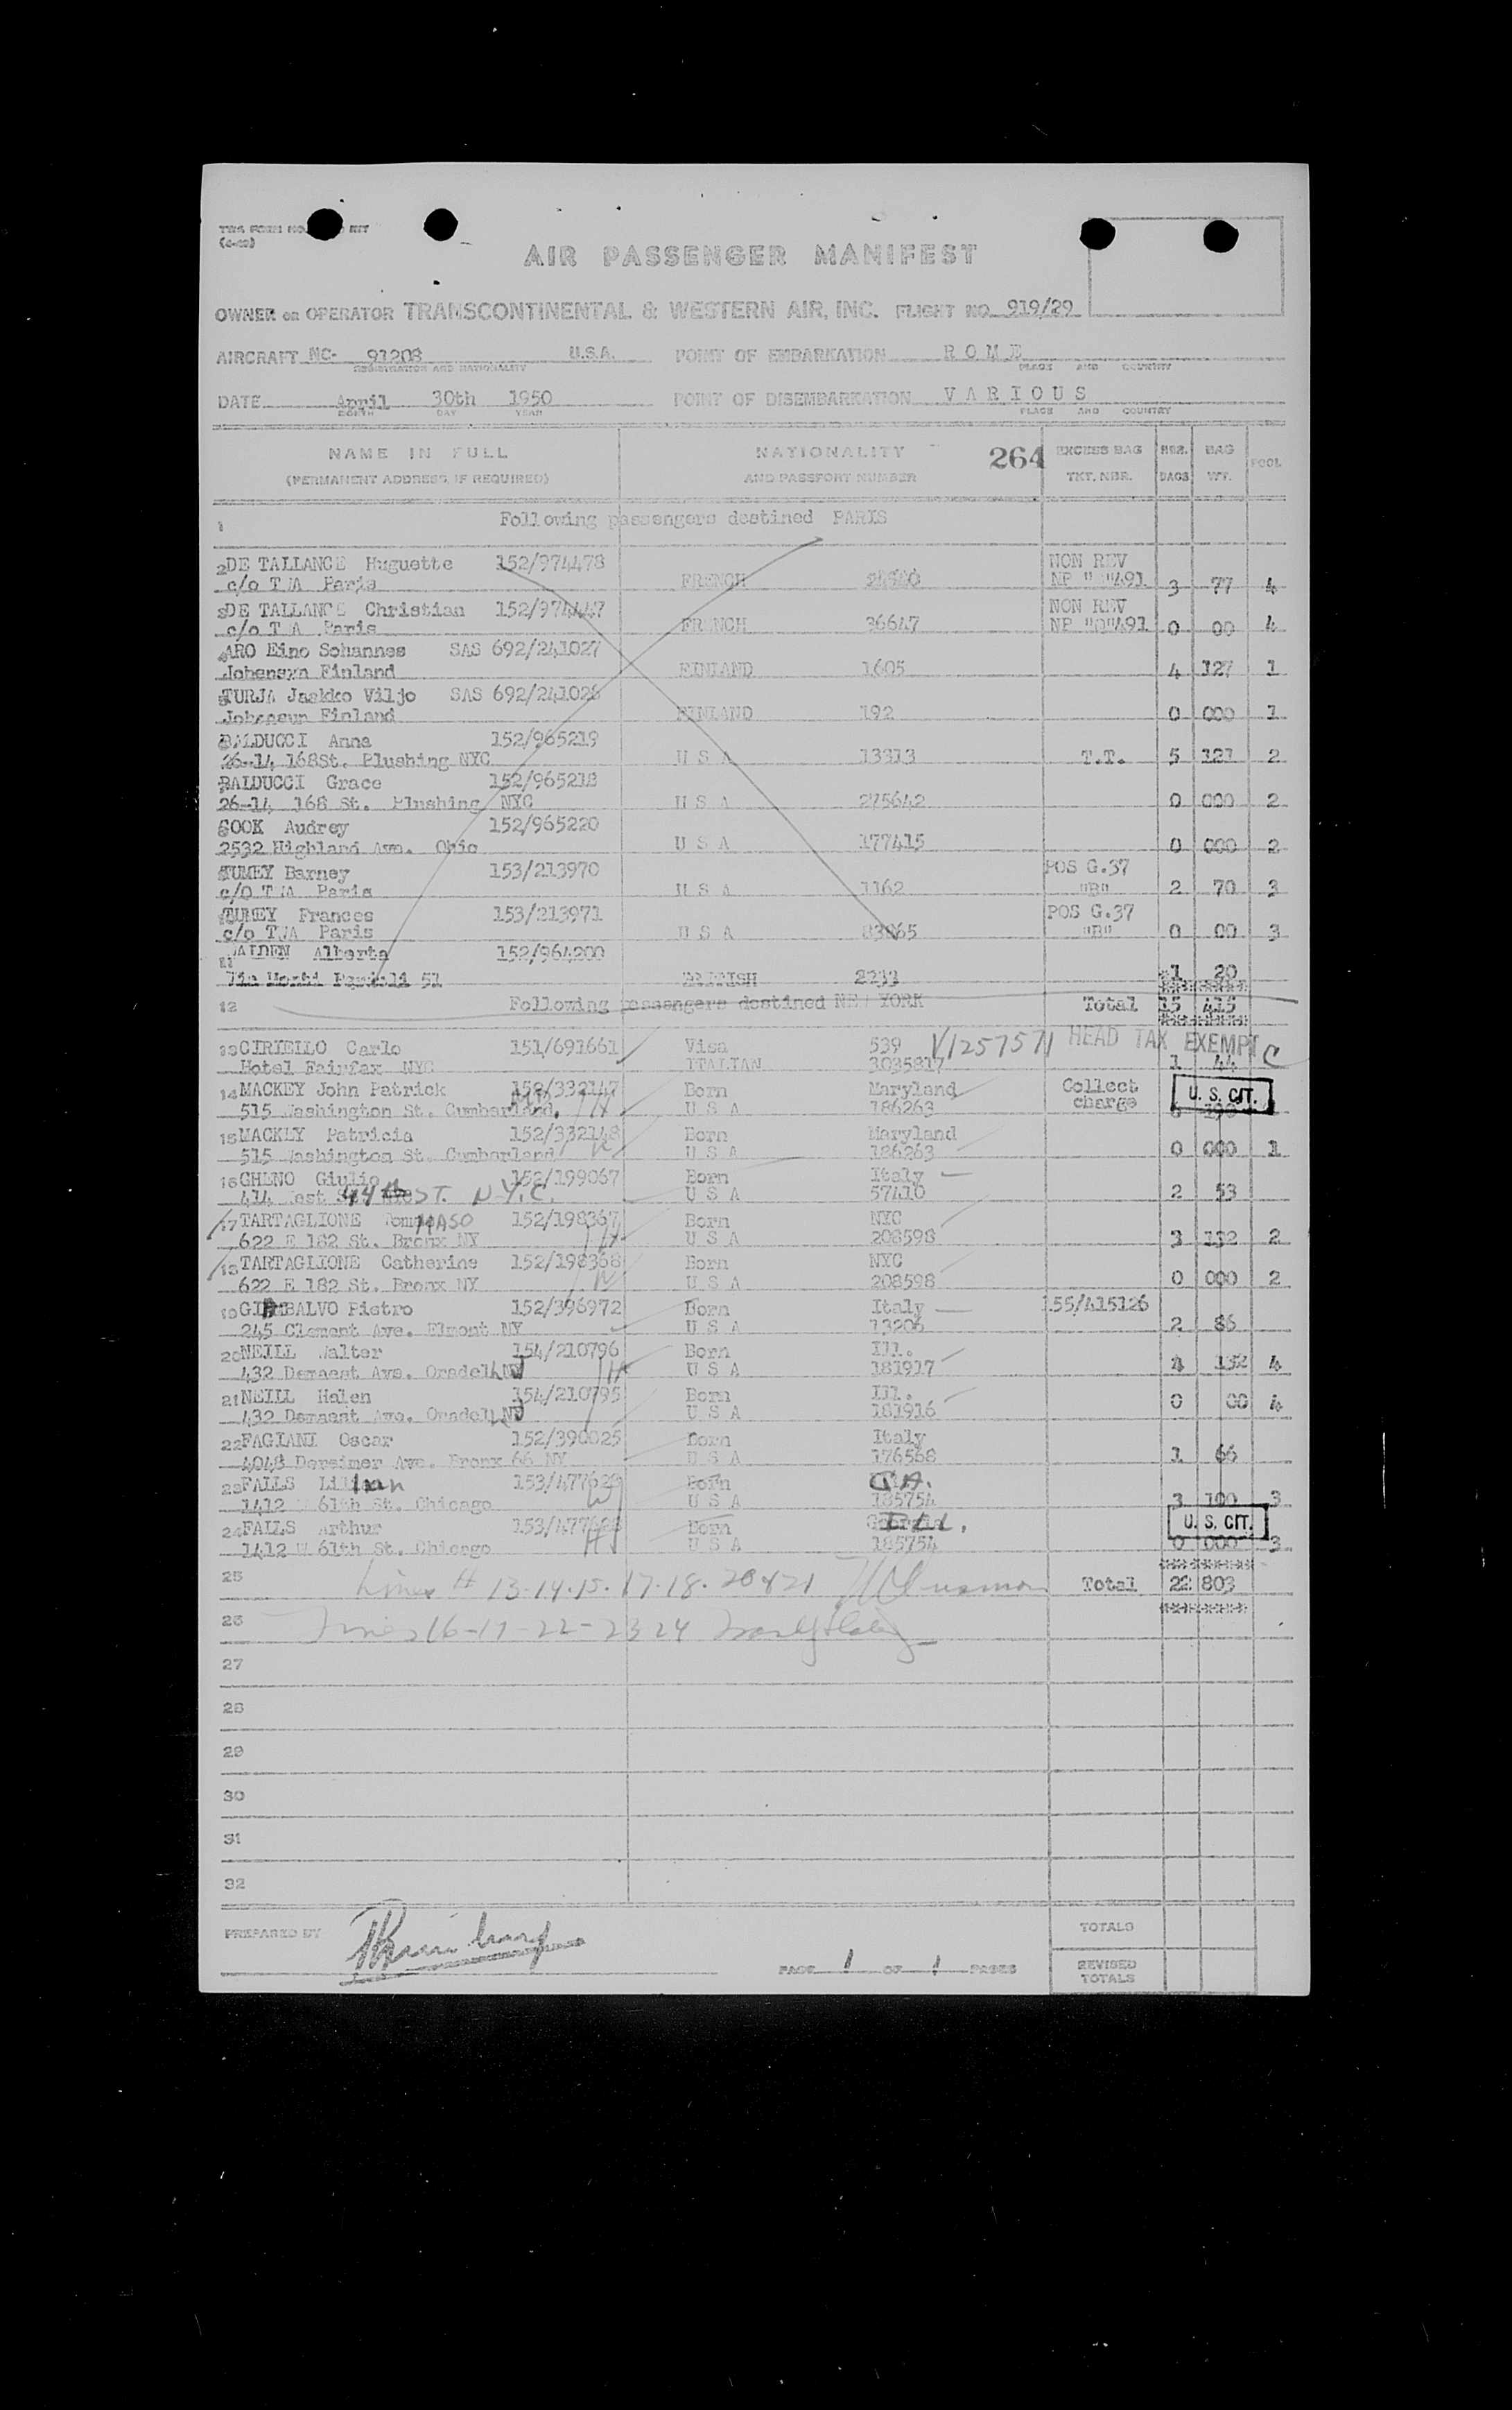 TWA FORM NO.
AIR PASSENGER MANIFEST
OWNER OR OPERATOR TRANSCONTINENTAL & WESTERN AIR, INC. FLIGHT NO. 919/29
AIRCRAFT NC- 91208 U.S.A. POINT OF EMBARKATION ROME
REGISTRATION AND NATIONALITY PLACE AND COUNTRY
DATE April 30th 1950 POINT OF DISEMBARKATION VARIOUS
MONTH DAY YEAR PLACE AND COUNTRY
NAME IN FULL NATIONALITY 264 EXCESS BAG NBR. BAG POOL
(PERMANENT ADDRESS, IF REQUIRED) AND PASSPORT NUMBER TKT. NBR. BAGS WT.
1 Following passengers destined PARIS
2 DE TALLANCE Huguette 152/974478 NON REV
c/o TWA Paris FRENCH NP "O"491 3 77 4
3 DE TALLANCE Christian 152/974447 NON REV
c/o TWA Paris FRENCH 36647 NP "O"491 0 00 4
ARO Eino Sohannes SAS 692/241027
Finland FINLAND 1605 4 127 1
TURJA Jaakko Viljo SAS 692/241028
Finland FINLAND 192 0 000 1
BALDUCCI Anna 152/965219
26-14 168St. Flushing NYC U S A 13313 T.T. 5 121 2
BALDUCCI Grace 152/965218
26-14 168 St. Flushing NYC U S A 275642 0 000 2
COOK Audrey 152/965220
2532 Highland Ave. Ohio U S A 177415 0 000 2
TUMEY Barney 153/213970 POS G.37
c/o TWA Paris U S A 1162 "B" 2 70 3
TUMEY Frances 153/213971 POS G.37
c/o TWA Paris U S A "B" 0 00 3
11 Alberta 152/964200
Via 51 BRITISH 2233 1 20
12 Following passengers destined NEW YORK Total 15 415
13 CIRIELLO Carlo 151/691661 Visa 539 V1257571 HEAD TAX EXEMPT C
Hotel Fairfax NYC ITALIAN 3035817 1 44
14 MACKEY John Patrick 152/332147 Born Maryland Collect U. S. CIT.
515 Washington St. Cumberland, MD. U S A 186263 charge
15 MACKEY Patricia 152/332148 Born Maryland
515 Washington St. Cumberland U S A 186263 0 000 1
16 GHINO Giulio 152/199067 Born Italy
414 44th ST. N.Y.C. U S A 57410 2 53
17 TARTAGLIONE TomMASO 152/198367 Born NYC
622 E 182 St. Bronx NY U S A 208598 3 132 2
18 TARTAGLIONE Catherine 152/198368 Born NYC
622 E 182 St. Bronx NY U S A 208598 0 000 2
19 GIAMBALVO Pietro 152/396972 Born Italy 155/415126
245 Clement Ave. Elmont NY U S A 13206 2 86
20 NEILL Walter 154/210796 Born Ill.
432 Demarest Ave. Oradell NJ U S A 181917 4 132 4
21 NEILL Helen 154/210795 Born Ill.
432 Demarest Ave. Oradell NJ U S A 181916 0 00 4
22 FAGIANI Oscar 152/390025 Born Italy
4048 Ave. Bronx 66 NY U S A 176568 1 66
23 FALLS Lillian Born GA.
1412 W 61th St. Chicago U S A 185754 3 100 3
24 FALLS Arthur Born ILL. U. S. CIT.
1412 W 61th St. Chicago U S A 185754 0 000 3
25 Lines # 13-14-15-17-18-20+21 Total 22 803
26 Lines 16-19-22-23 24
27
28
29
30
31
32
PREPARED BY PAGE 1 OF 1 PAGES TOTALS
REVISED
TOTALS